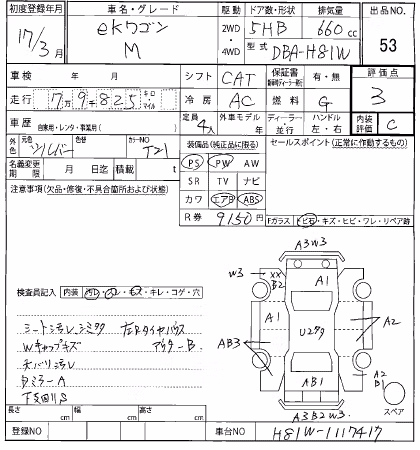 初度登録年月 車名・グレード 駆動 ドア数・形状 排気量 出品NO.
17/3月 eKワゴン M 2WD・4WD 5HB 660cc 53
型式 DBA-H81W
車検 年 月 シフト CAT 保証書 有・無 評価点 3
走行 7万9=825 キロ マイル 冷房 AC 燃料 G
車歴 自家用・レンタ・事業用( ) 定員 4人 外車モデル 年 ディーラー・並行 ハンドル 左・右 内装評価 C
外色 元色 シルバー 色替 カラーNO T21
装備品(純正品に限る) セールスポイント(正常に作動するもの)
名義変更期限 月 日迄 積載 t
PS PW AW
SR TV ナビ
注意事項(欠品・修復・不具合箇所および状態)
カワ エアB ABS
R券 9150円
Fガラス トビ石・キズ・ヒビ・ワレ・リペア跡
A3W3
W3 XX B2 A1
検査員記入 内装 汚レ・スレ・モス・キレ・コゲ・穴
A1 U2 A2
シート汚レ、シミタタ
Wキャップキズ アウター-B
AB3
天バリ汚レ
DミラーA
A2 B1
AB1
下廻りS
スペア
A3B2W3
長さ cm 幅 cm 高さ cm
登録NO 車台NO H81W-1117417